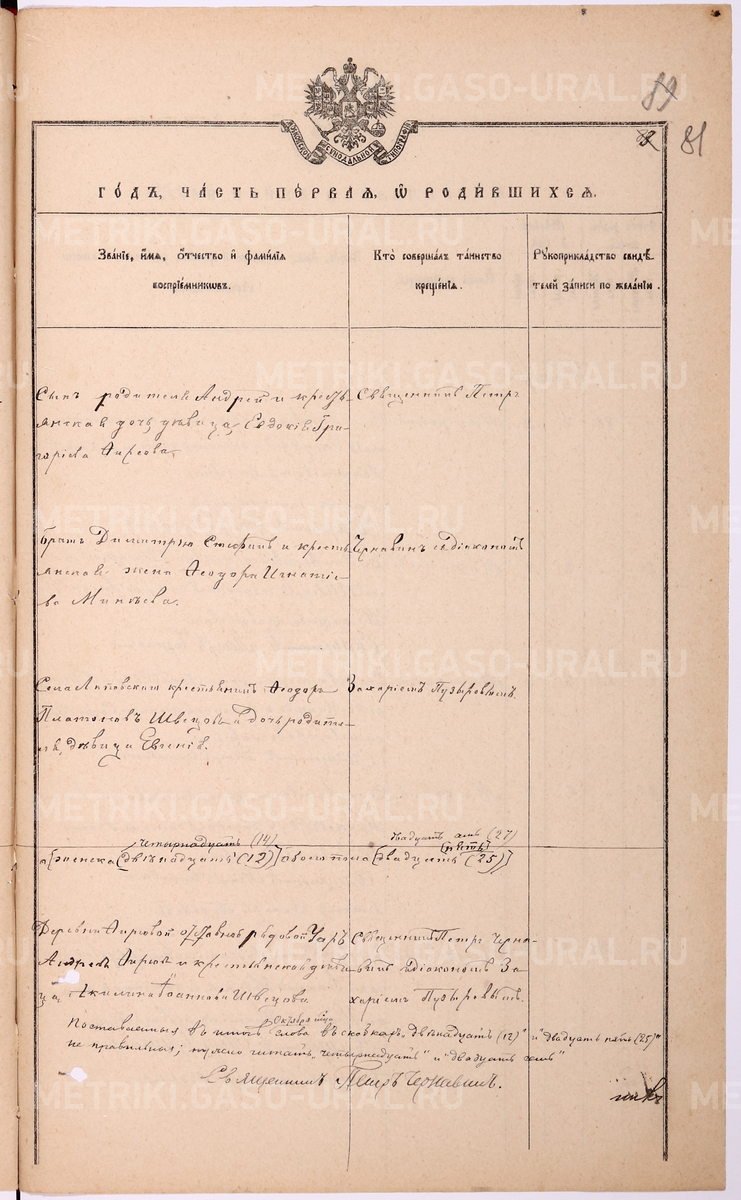 METRIKI.GASO-URAL.RU
89
81
МОСКОВСКОЙ СѴНОДАЛЬНОЙ ТИПОГРАФІИ
ГОДЪ, ЧАСТЬ ПЕРВАЯ, Ѡ РОДИВШИХСЯ.
Званіе, имя, отчество и фамилія воспріемниковъ.
Кто совершалъ таинство крещенія.
Рукоприкладство свидѣтелей записи по желанію.
Сынъ родителя Андрей и кресть-
янская дочь дѣвица Евдокія Гри-
горіева Фирсова.
Священникъ Петръ
братъ Димитрія Стефанъ и кресть-
янская жена Ѳеодора Игнатіе-
ва Минѣева.
Чернавинъ съ діакономъ
Села крестьянинъ Ѳеодоръ
Платоновъ Швецовъ и дочь родите-
ля, дѣвица Евгенія.
Захаріемъ Пузыревымъ.
четырнадцать (14)
двадцать семь (27)
а женска [двѣнадцать (12)] обоего пола [двадцать пять (25)]
Деревни отставной рядовой
Андрей и крестьянская дѣви-
ца Акилина Іоаннова Швецова.
Священникъ Петръ Черна-
винъ съ діакономъ За-
харіемъ Пузыревымъ.
Поставленныя въ итогѣ Октября м-ца слова въ скобкахъ „двѣнадцать (12)" и „двадцать пять (25)"
не правильны; нужно читать „четырнадцать" и „двадцать семь"
Священникъ Петръ Чернавинъ.